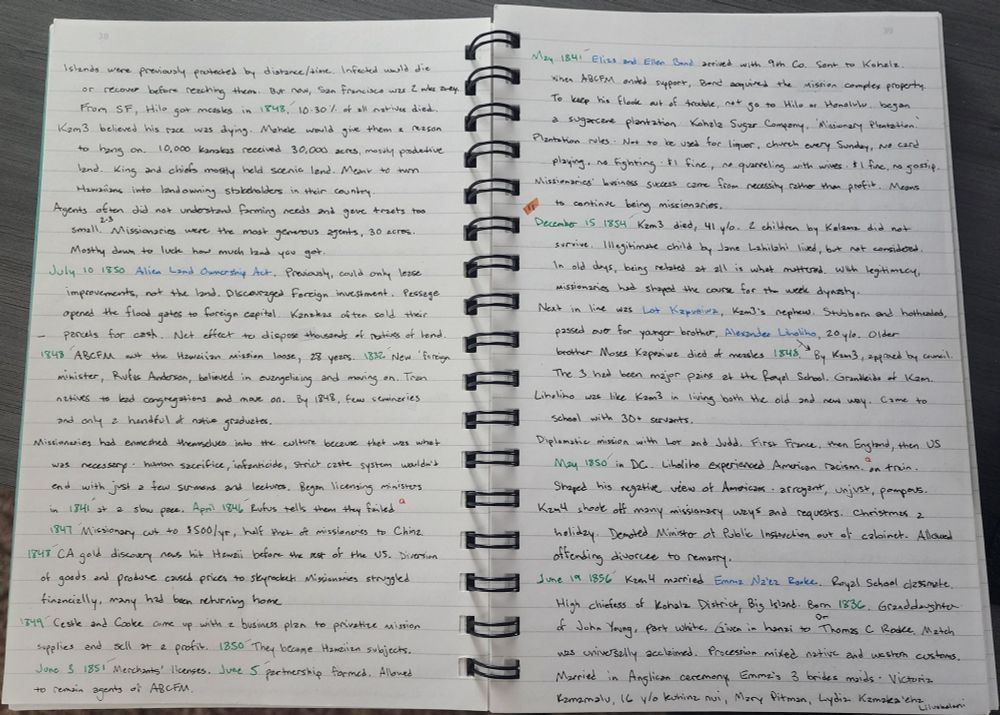 38
Islands were previously protected by distance/time. Infected would die
or recover before reaching them. But now, San Francisco was 2 wks away.
From SF, Hilo got measles in 1848, 10-30% of all natives died.
Kam3 believed his race was dying. Mahele would give them a reason
to hang on. 10,000 kanakas received 30,000 acres, mostly productive
land. King and chiefs mostly held scenic land. Meant to turn
Hawaiians into landowning stakeholders in their country.
Agents often did not understand farming needs and gave tracts too
small. 2-3 Missionaries were the most generous agents, 30 acres.
Mostly down to luck how much land you got.
July 10 1850 Alien Land Ownership Act. Previously, could only lease
improvements, not the land. Discouraged foreign investment. Passage
opened the flood gates to foreign capital. Kanakas often sold their
parcels for cash. Net effect to dispose thousands of natives of land.
1848 ABCFM cut the Hawaiian mission loose, 28 years. 1832 New foreign
minister, Rufus Anderson, believed in evangelizing and moving on. Train
natives to lead congregations and move on. By 1848, few seminaries
and only a handful of native graduates.
Missionaries had enmeshed themselves into the culture because that was what
was necessary. human sacrifice, infanticide, strict caste system wouldn't
end with just a few sermons and lectures. Began licensing ministers
in 1841 at a slow pace. April 1846 Rufus tells them they failed
1847 Missionary cut to $500/yr, half that of missionaries to China
1848 CA gold discovery news hit Hawaii before the rest of the US. Diversion
of goods and produce caused prices to skyrocket. Missionaries struggled
financially, many had been returning home
1849 Castle and Cooke came up with a business plan to privatize mission
supplies and sell at a profit. 1850 They became Hawaiian subjects.
June 3 1851 Merchants' licenses. June 5 partnership formed. Allowed
to remain agents of ABCFM.
39
May 1841 Elias and Ellen Bond arrived with 9th Co. Sent to Kohala.
When ABCFM ended support, Bond acquired the mission complex property.
To keep his flock out of trouble, not go to Hilo or Honolulu, began
a sugarcane plantation. Kohala Sugar Company, 'Missionary Plantation.'
Plantation rules: Not to be used for liquor, church every Sunday, no card
playing, no fighting - $1 fine, no quarreling with wives - $1 fine, no gossip.
Missionaries' business success came from necessity rather than profit. Means
to continue being missionaries.
December 15 1854 Kam3 died, 41 y/o. 2 children by Kalama did not
survive. Illegitimate child by Jane Lahilahi lived, but not considered.
In old days, being related at all is what mattered. With legitimacy,
missionaries had shaped the course for the weak dynasty.
Next in line was Lot Kapuaiwa, Kam3's nephew. Stubborn and hotheaded,
passed over for younger brother, Alexander Liholiho, 20 y/o. Older
brother Moses Kapaaiwe died of measles 1848. By Kam3, approved by council.
The 3 had been major pains at the Royal School. Grandkids of Kam.
Liholiho was like Kam3 in living both the old and new way. Came to
school with 30+ servants.
Diplomatic mission with Lot and Judd. First France, then England, then US
May 1850 in DC. Liholiho experienced American racism on a train.
Shaped his negative view of Americans - arrogant, unjust, pompous.
Kam4 shook off many missionary ways and requests. Christmas a
holiday. Demoted Minister of Public Instruction out of cabinet. Allowed
offending divorcee to remarry.
June 19 1856 Kam4 married Emma Na'ea Rooke. Royal School classmate.
High chiefess of Kohala District, Big Island. Born 1836. Granddaughter
of John Young, part white. Given in hanai to Dr Thomas C Rooke. Match
was universally acclaimed. Procession mixed native and western customs.
Married in Anglican ceremony. Emma's 3 brides maids - Victoria
Kamamalu, 16 y/o kuhina nui, Mary Pitman, Lydia Kamaka'eha
Liliuokalani